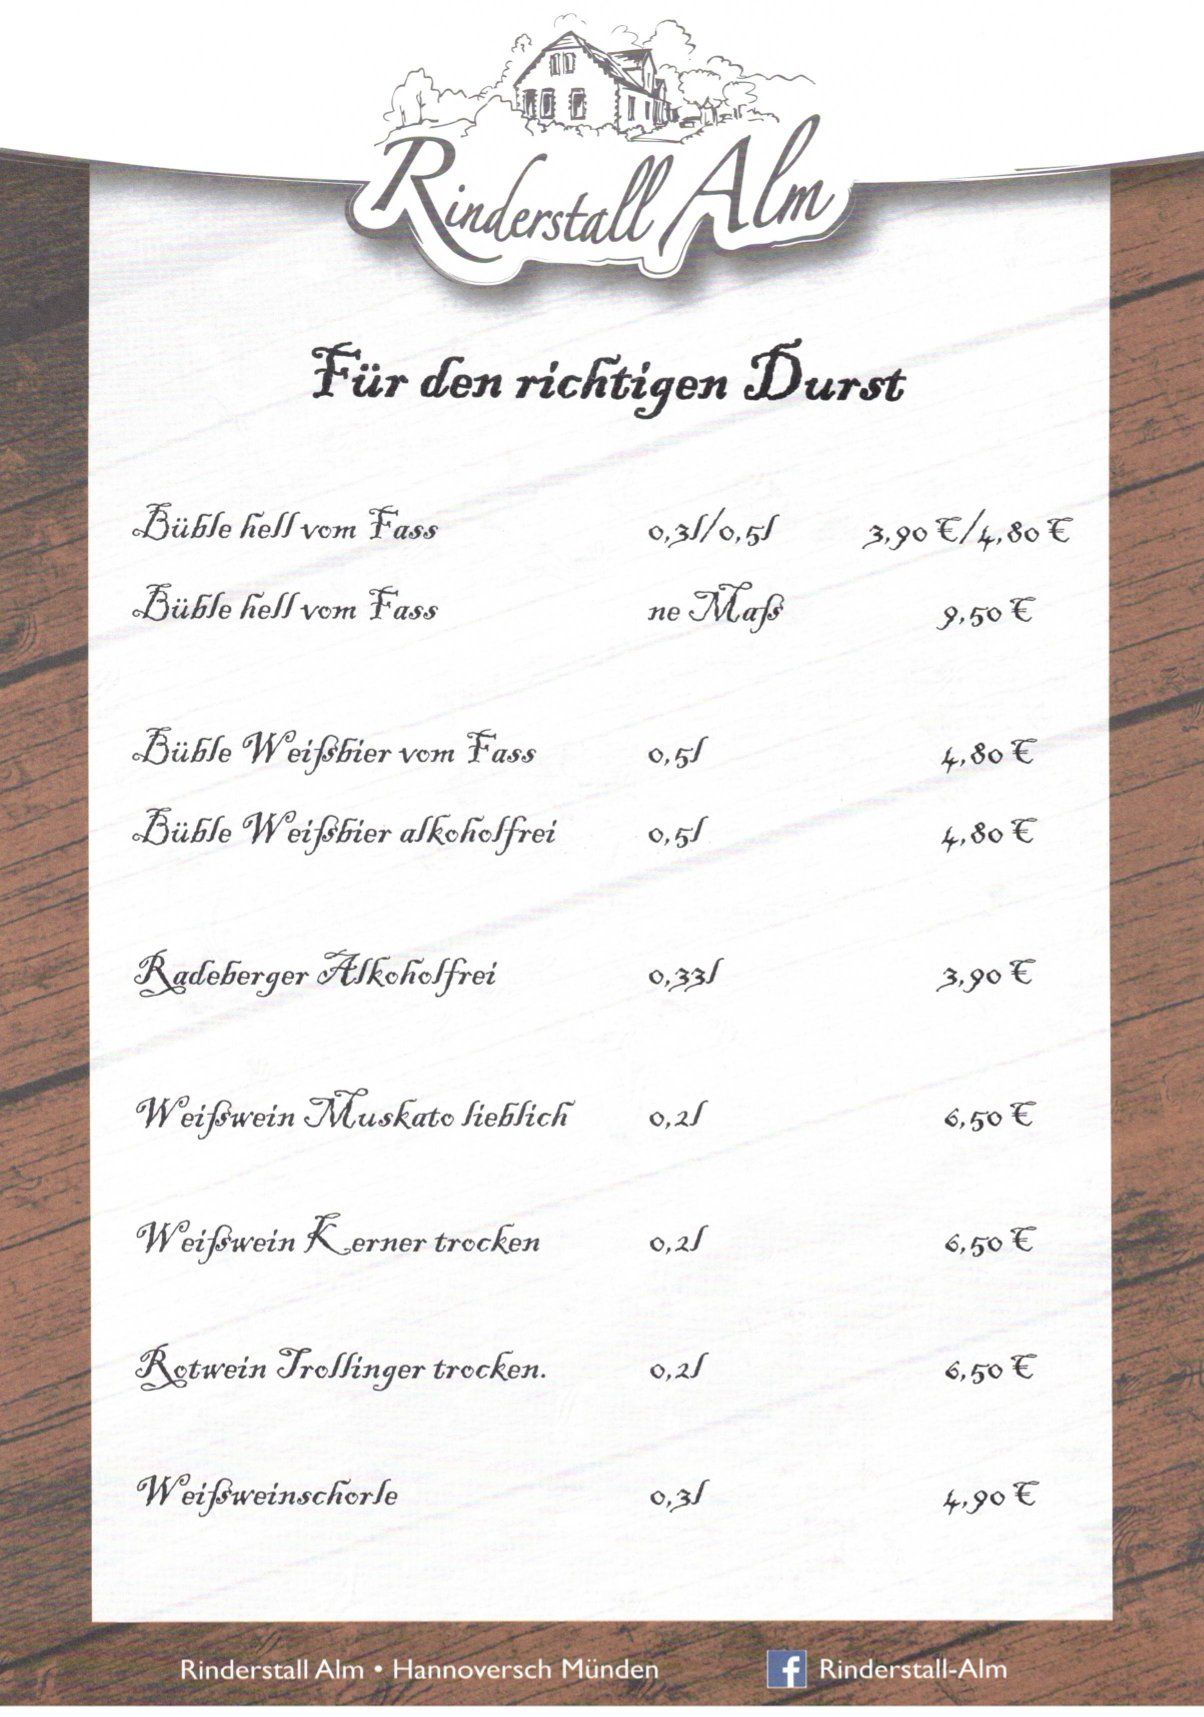 Rinderstall Alm
Für den richtigen Durst
Büble hell vom Fass 0,3l/0,5l 3,90 €/4,80 €
Büble hell vom Fass ne Maß 9,50 €
Büble Weißbier vom Fass 0,5l 4,80 €
Büble Weißbier alkoholfrei 0,5l 4,80 €
Radeberger Alkoholfrei 0,33l 3,90 €
Weißwein Muskato lieblich 0,2l 6,50 €
Weißwein Kerner trocken 0,2l 6,50 €
Rotwein Trollinger trocken. 0,2l 6,50 €
Weißweinschorle 0,3l 4,90 €
Rinderstall Alm • Hannoversch Münden f Rinderstall-Alm